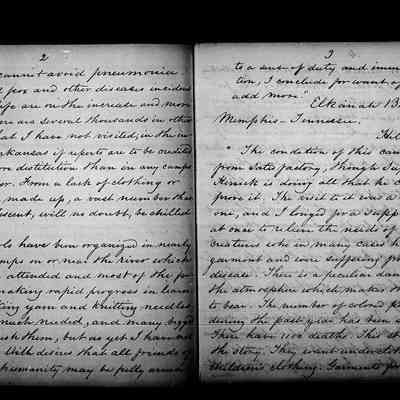 2
cannot avoid pneumonia
pox and other diseases incident
life are on the increase and more
ere are several thousands in other
at I have not visited, in the in
rkansas if reports are to be credited
ore destitution than in any camps
or. From a lack of clothing or
made up, a vast number that
escent, will no doubt, be chilled
ols have been organized in nearly
mps on or near the river which
attended and most of the
making rapid progress in learn
ting yarn and knitting needles
much needed, and many
them, but as yet I have not
With desires that all friends of
humanity may be fully
3
to a sense of duty and
tion, I conclude for want of
add more"
Elkanah B
Memphis - Tennessee.
"The condition of this cam
from satisfactory, though Su
is doing all that he c
prove it. The visit to it was a
one, and I longed for a supp
at once to relieve the needs of
creatures who in many cases h
garment and were suffering
disease. There is a peculiar dam
the atmosphere which makes
to bear. The number of colored
during the past year has been
There have 1100 deaths. This
the story. They want undercloth
children's clothing. Garments